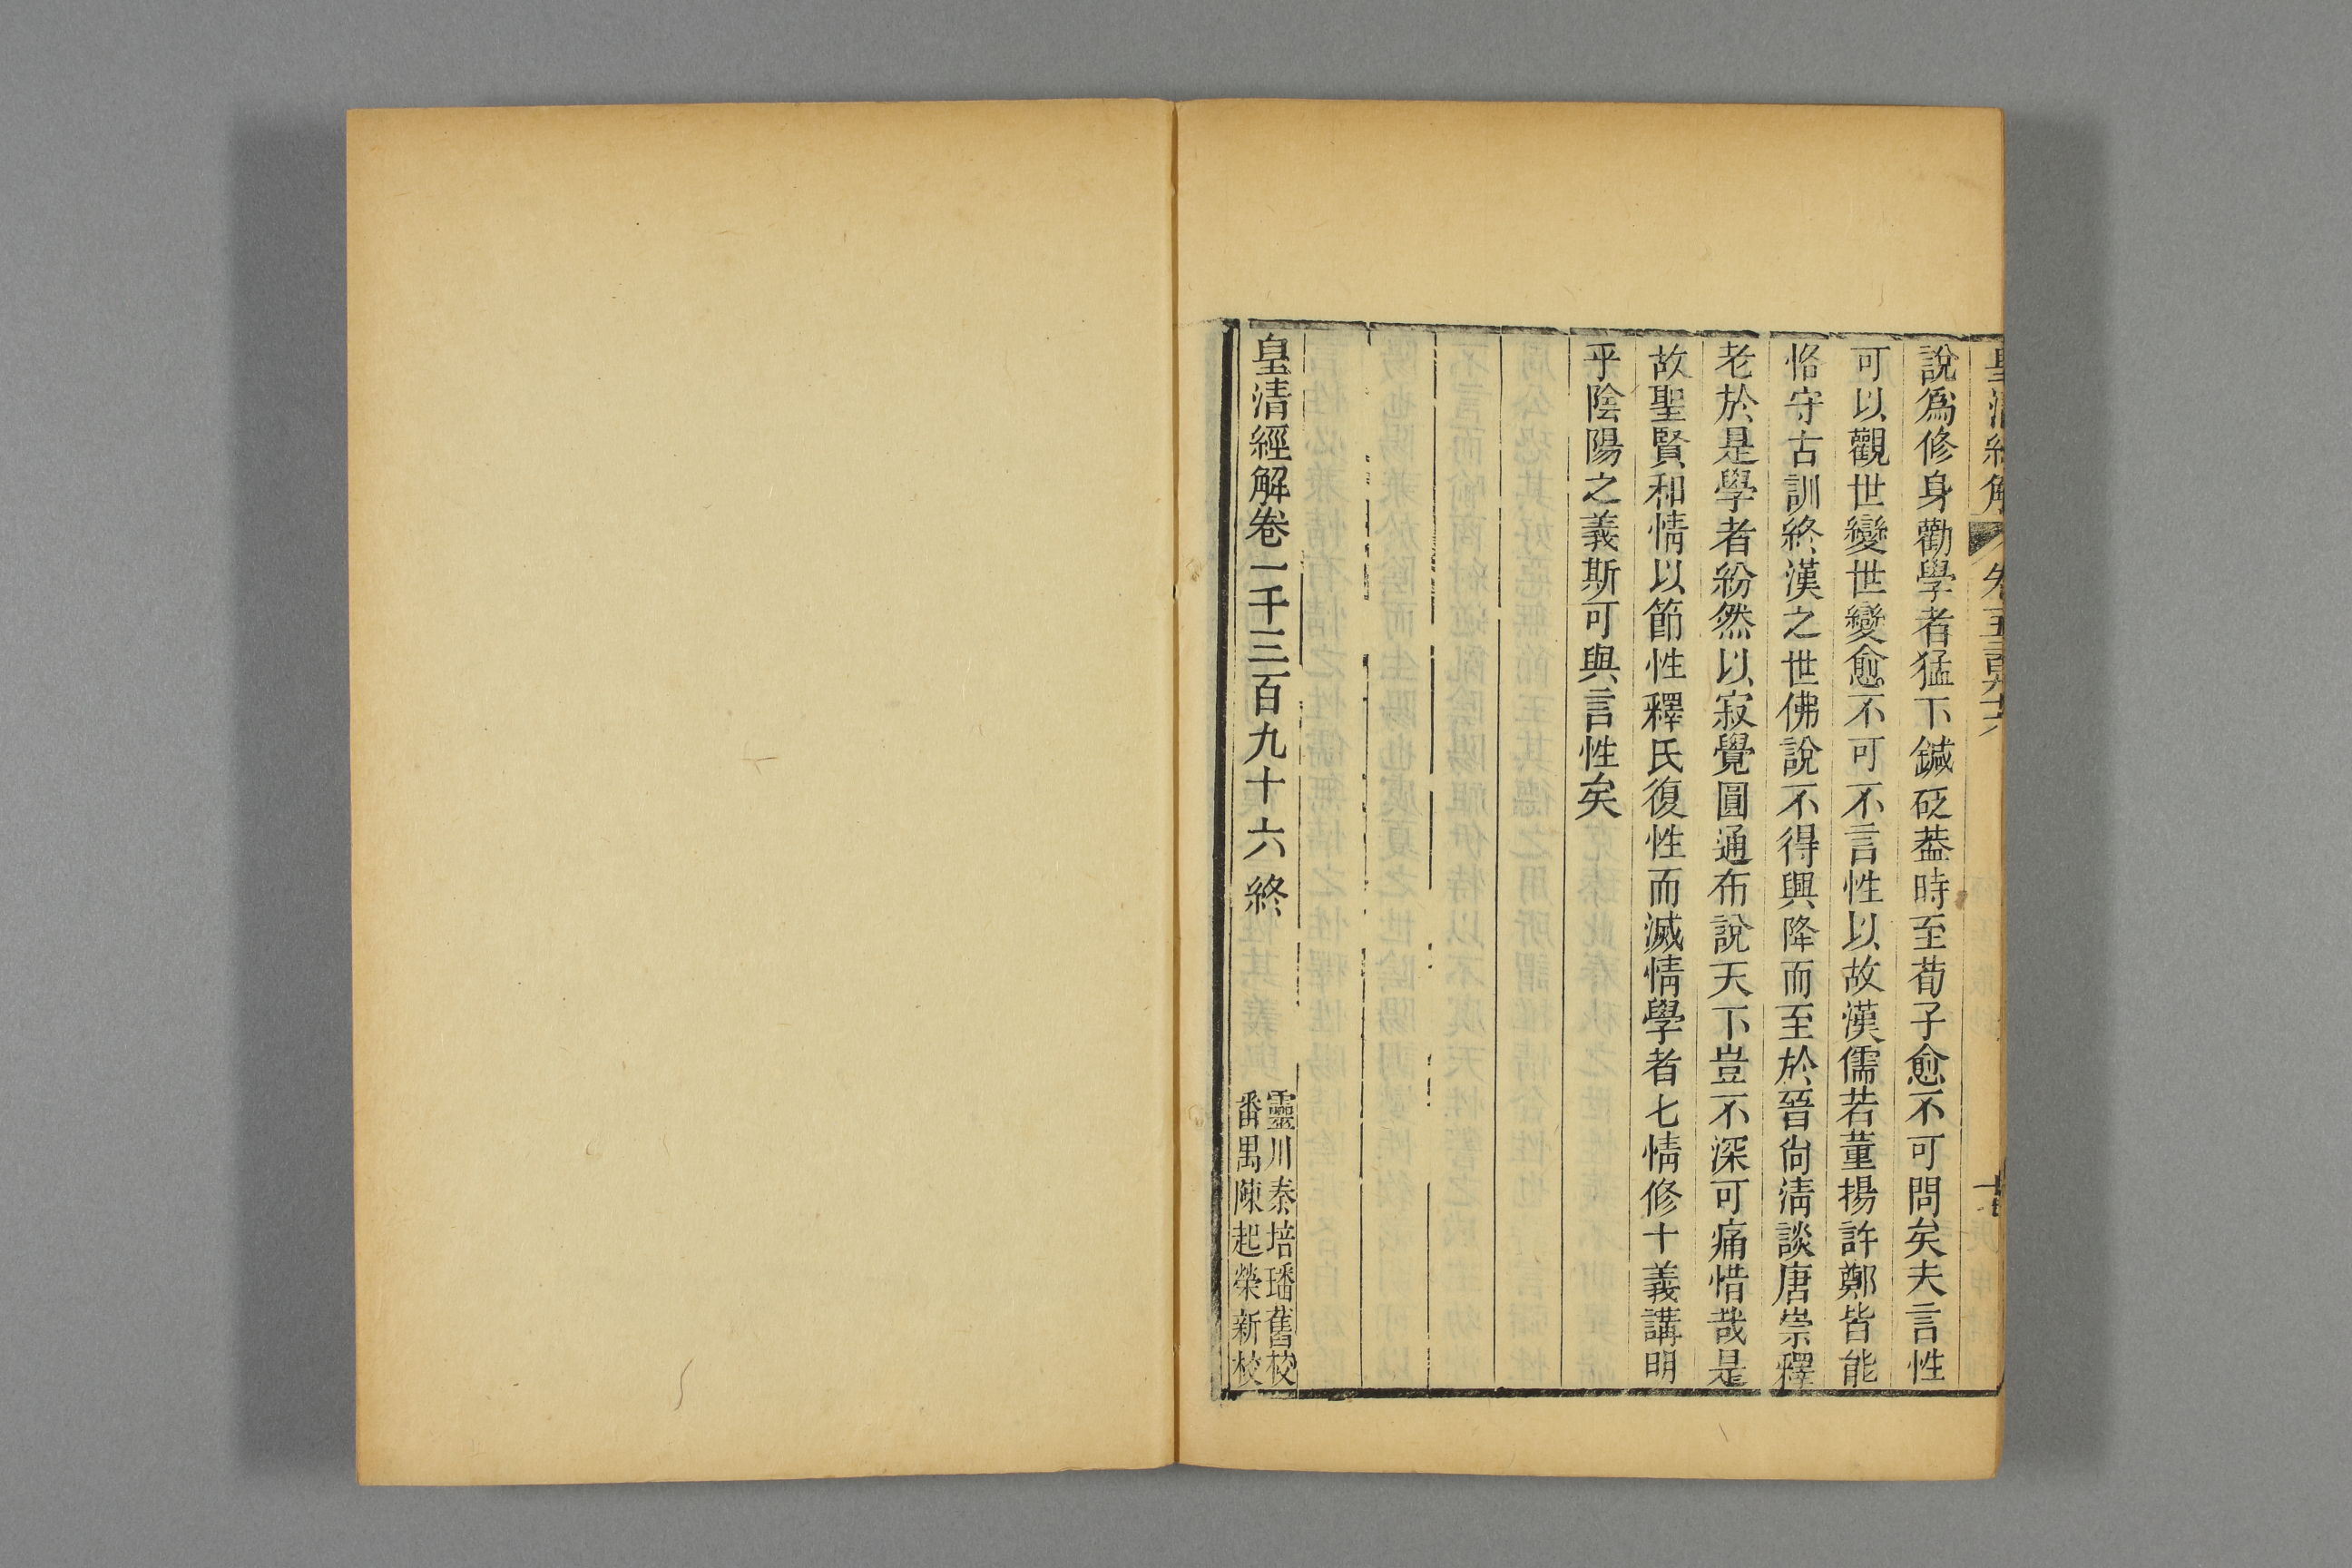 皇清經解 卷一千三百九十六
說爲修身勸學者猛下鍼砭葢時至荀子愈不可問矣夫言性
可以觀世變世變愈不可不言性以故漢儒若董揚許鄭皆能
恪守古訓終漢之世佛說不得興降而至於晉尙淸談唐崇釋
老於是學者紛然以寂覺圓通布說天下豈不深可痛惜哉是
故聖賢和情以節性釋氏復性而滅情學者七情修十義講明
乎陰陽之義斯可與言性矣
皇清經解卷一千三百九十六終
靈川秦培璠舊校
番禺陳起榮新校